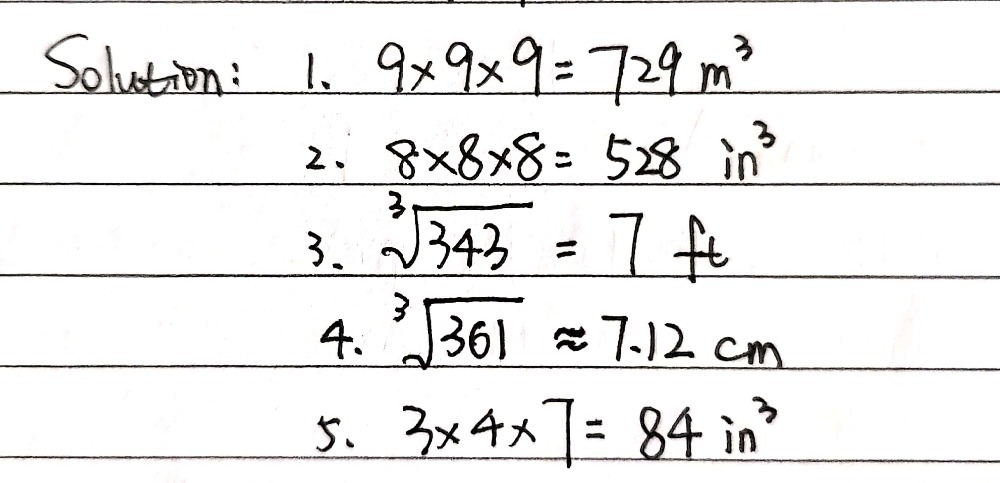 Solution: 1. 9×9×9 = 729 m³
2. 8×8×8 = 528 in³
3. ∛343 = 7 ft
4. ∛361 ≈ 7.12 cm
5. 3×4×7 = 84 in³